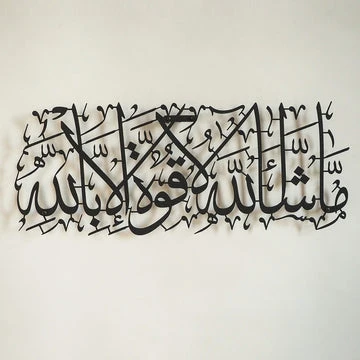 مَّا شَاءَ ٱللَّهُ لَا قُوَّةَ إِلَّا بِٱللَّهِ